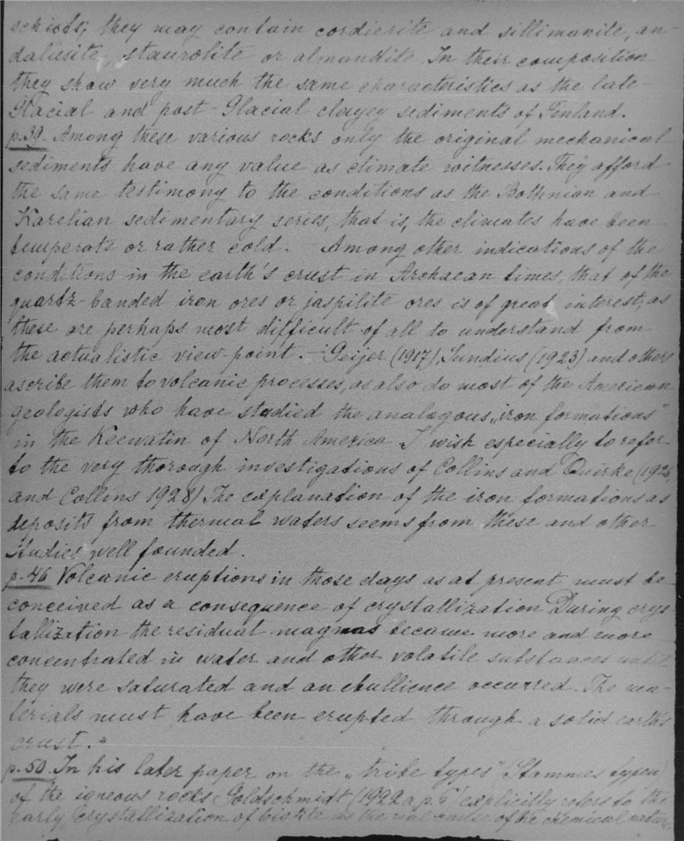 schists; they may contain cordierite and sillimanite, an-
dalusite, staurolite or almandite. In their composition
they show very much the same characteristics as the late-
Glacial and post-Glacial clayey sediments of Finland.
p.39. Among these various rocks only the original mechanical
sediments have any value as climate witnesses. They afford
the same testimony to the conditions as the Bothnian and
Karelian sedimentary series, that is, the climates have been
temperate or rather cold. Among other indications of the
conditions in the earth's crust in Archaean times, that of the
quartz-banded iron ores or jaspilite ores is of great interest, as
these are perhaps most difficult of all to understand from
the actualistic view-point. - Geijer (1917), Sundius (1923) and others
ascribe them to volcanic processes, as also do most of the American
geologists who have studied the analogous „iron formations"
in the Keewatin of North America. I wish especially to refer
to the very thorough investigations of Collins and Quirke (1926
and Collins 1928) The explanation of the iron formations as
deposits from thermal waters seems from these and other
studies well founded.
p.46 Volcanic eruptions in those days as at present must be
conceived as a consequence of crystallization During crys
tallization the residual magmas became more and more
concentrated in water and other volatile substances until
they were saturated and an ebullience occurred. The ma-
terials must have been erupted through a solid earth's
crust."
p.50. In his later paper on the „tribe types" Stammestypen
of the igneous rocks Goldschmidt (1922 a p.6) explicitly refers to the
early crystallization of biotite as the real cause of the chemical nature